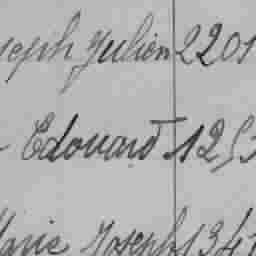 seph Julien 2201
Edouard 1253
Marie Joseph 1341